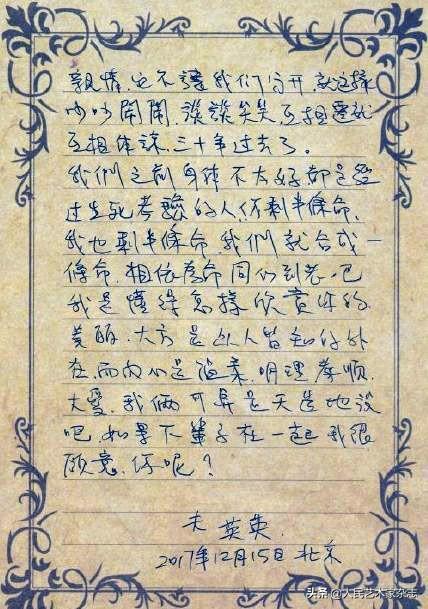 親情也不讓我们分开就这樣
吵吵鬧鬧，談談笑笑互相遷就
互相体諒，三十年过去了。
我們之前身体不太好都是經
过生死考驗的人，你剩半條命，
我也剩半條命，我們就合成一
條命，相依為命同行到老吧
我是懂得怎樣欣賞你的
美麗、大方是众人皆知的外
在，而内心是溫柔，明理孝順，
大愛，我倆可算是天造地設
吧，如果下輩子在一起我很
願意，你呢？
夫 英英
2017年12月15日 北京
头条@人民艺术家杂志